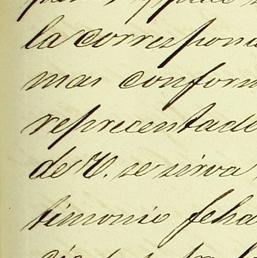 la correspon
mas conform
reprecentado
de V. se sirva
timonio feha